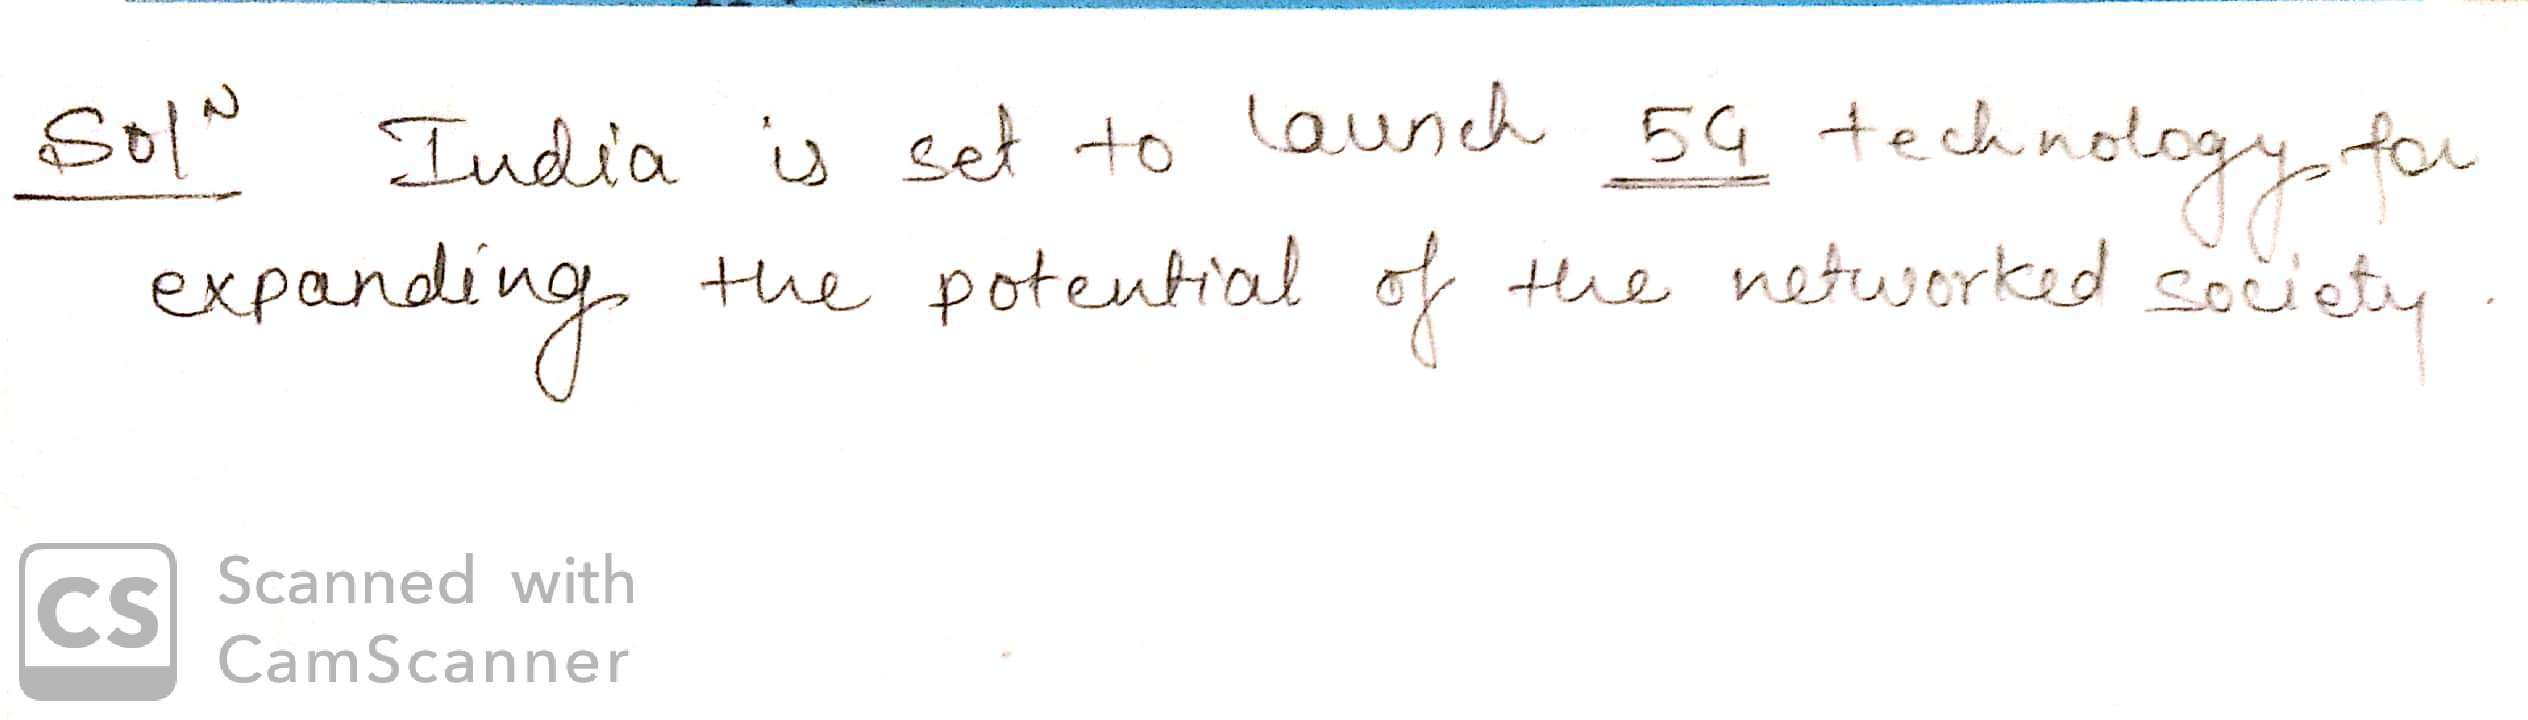 Solᴺ India is set to launch 5G technology for
expanding the potential of the networked society.
CS Scanned with
CamScanner